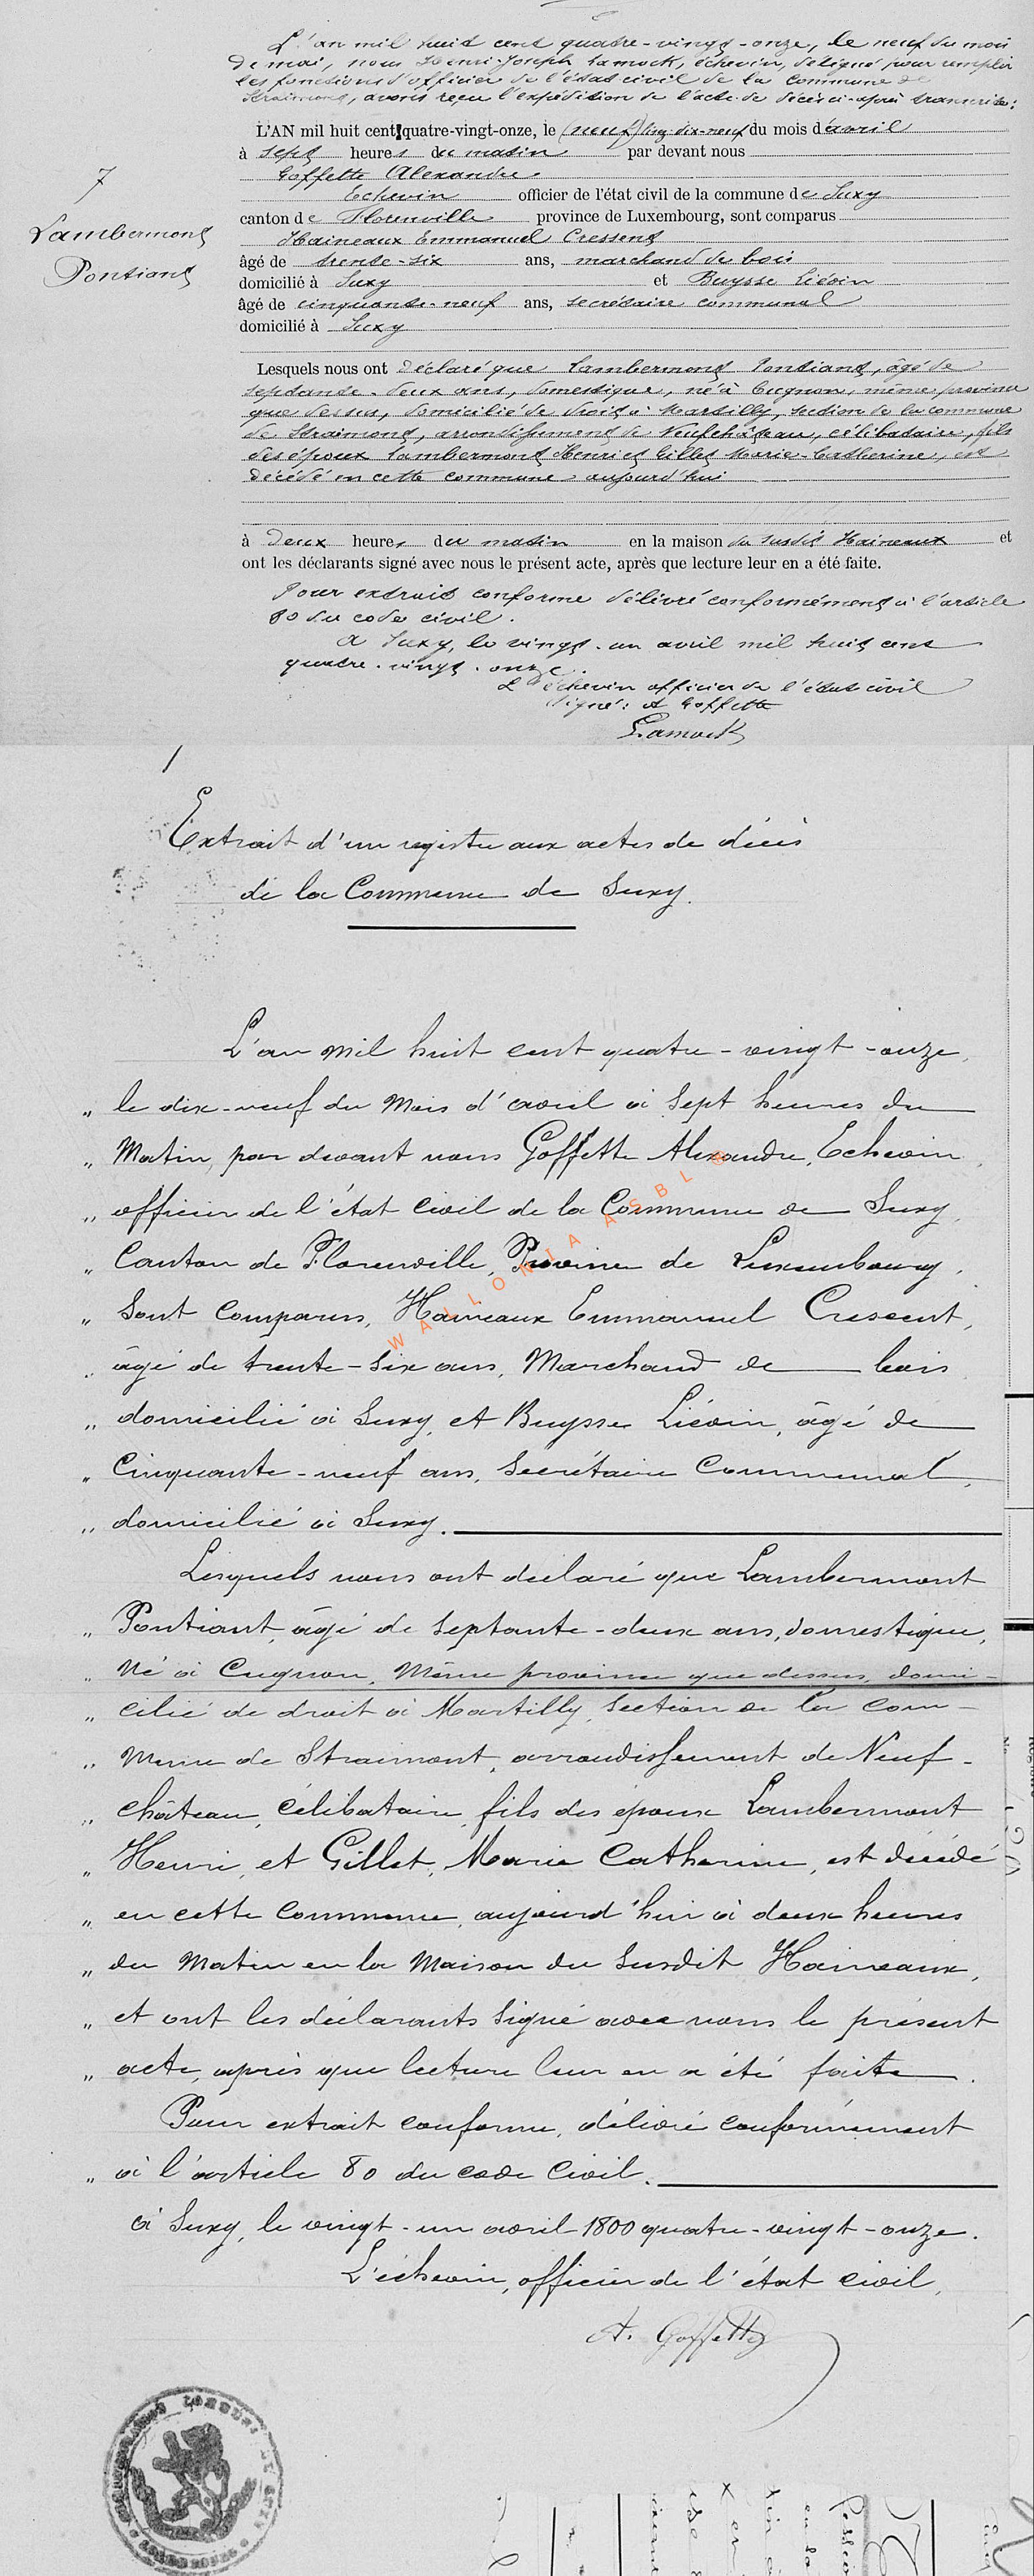 L'an mil huit cent quatre-vingt-onze, le neuf du mois
de mai, nous Henri-Joseph Lamock, échevin, délégué pour remplir
les fonctions d'officier de l'état civil de la commune de
Straimont, avons reçu l'expédition de l'acte de décès ci-après transcrite:
L'AN mil huit cent quatre-vingt-onze, le (neuf) dix-neuf du mois d'avril
à sept heures du matin par devant nous
Goffette Alexandre
Echevin officier de l'état civil de la commune de Suxy
canton de Florenville province de Luxembourg, sont comparus
7
Lambermont
Pontiant
Haineaux Emmanuel Cressent
âgé de trente-six ans, marchand de bois
domicilié à Suxy et Buysse Liévin
âgé de cinquante-neuf ans, secrétaire communal
domicilié à Suxy
Lesquels nous ont déclaré que Lambermont Pontiant, âgé de
septante-deux ans, domestique, né à Cugnon, même province
que dessus, domicilié de droit à Martilly, section de la commune
de Straimont, arrondissement de Neufchâteau, célibataire, fils
des époux Lambermont Henri et Gillet Marie-Catherine, est
décédé en cette commune aujourd'hui
à deux heures du matin en la maison du susdit Haineaux et
ont les déclarants signé avec nous le présent acte, après que lecture leur en a été faite.
Pour extrait conforme délivré conformément à l'article
80 du code civil.
A Suxy, le vingt-un avril mil huit cent
quatre-vingt-onze.
L'échevin officier de l'état civil
signé: A Goffette
Lamock
1
Extrait d'un registre aux actes de décès
de la Commune de Suxy.
L'an mil huit cent quatre-vingt-onze,
„ le dix-neuf du mois d'avril à sept heures du
„ Matin, par devant nous Goffette Alexandre, Echevin,
„ officier de l'état civil de la Commune de Suxy,
„ Canton de Florenville, Province de Luxembourg,
„ Sont Comparus, Haineaux Emmanuel Cressent,
„ âgé de trente-six ans, Marchand de bois
„ domicilié à Suxy, et Buysse Liévin, âgé de
„ Cinquante-neuf ans, Secrétaire Communal,
„ domicilié à Suxy.
Lesquels nous ont déclaré que Lambermont
„ Pontiant, âgé de septante-deux ans, domestique,
„ Né à Cugnon, Même province que dessus, domi-
„ cilié de droit à Martilly, section de la Com-
„ mune de Straimont, arrondissement de Neuf-
„ château, célibataire, fils des époux Lambermont
„ Henri, et Gillet, Marie Catherine, est décédé
„ en cette Commune, aujourd'hui à deux heures
„ du Matin en la Maison du Susdit Haineaux,
„ et ont les déclarants signé avec nous le présent
„ acte, après que lecture leur en a été faite.
Pour extrait conforme, délivré conformément
„ à l'article 80 du code Civil.
à Suxy, le vingt-un avril 1800 quatre-vingt-onze.
L'échevin, officier de l'état civil,
A. Goffette
WALLONIA ASBL ©